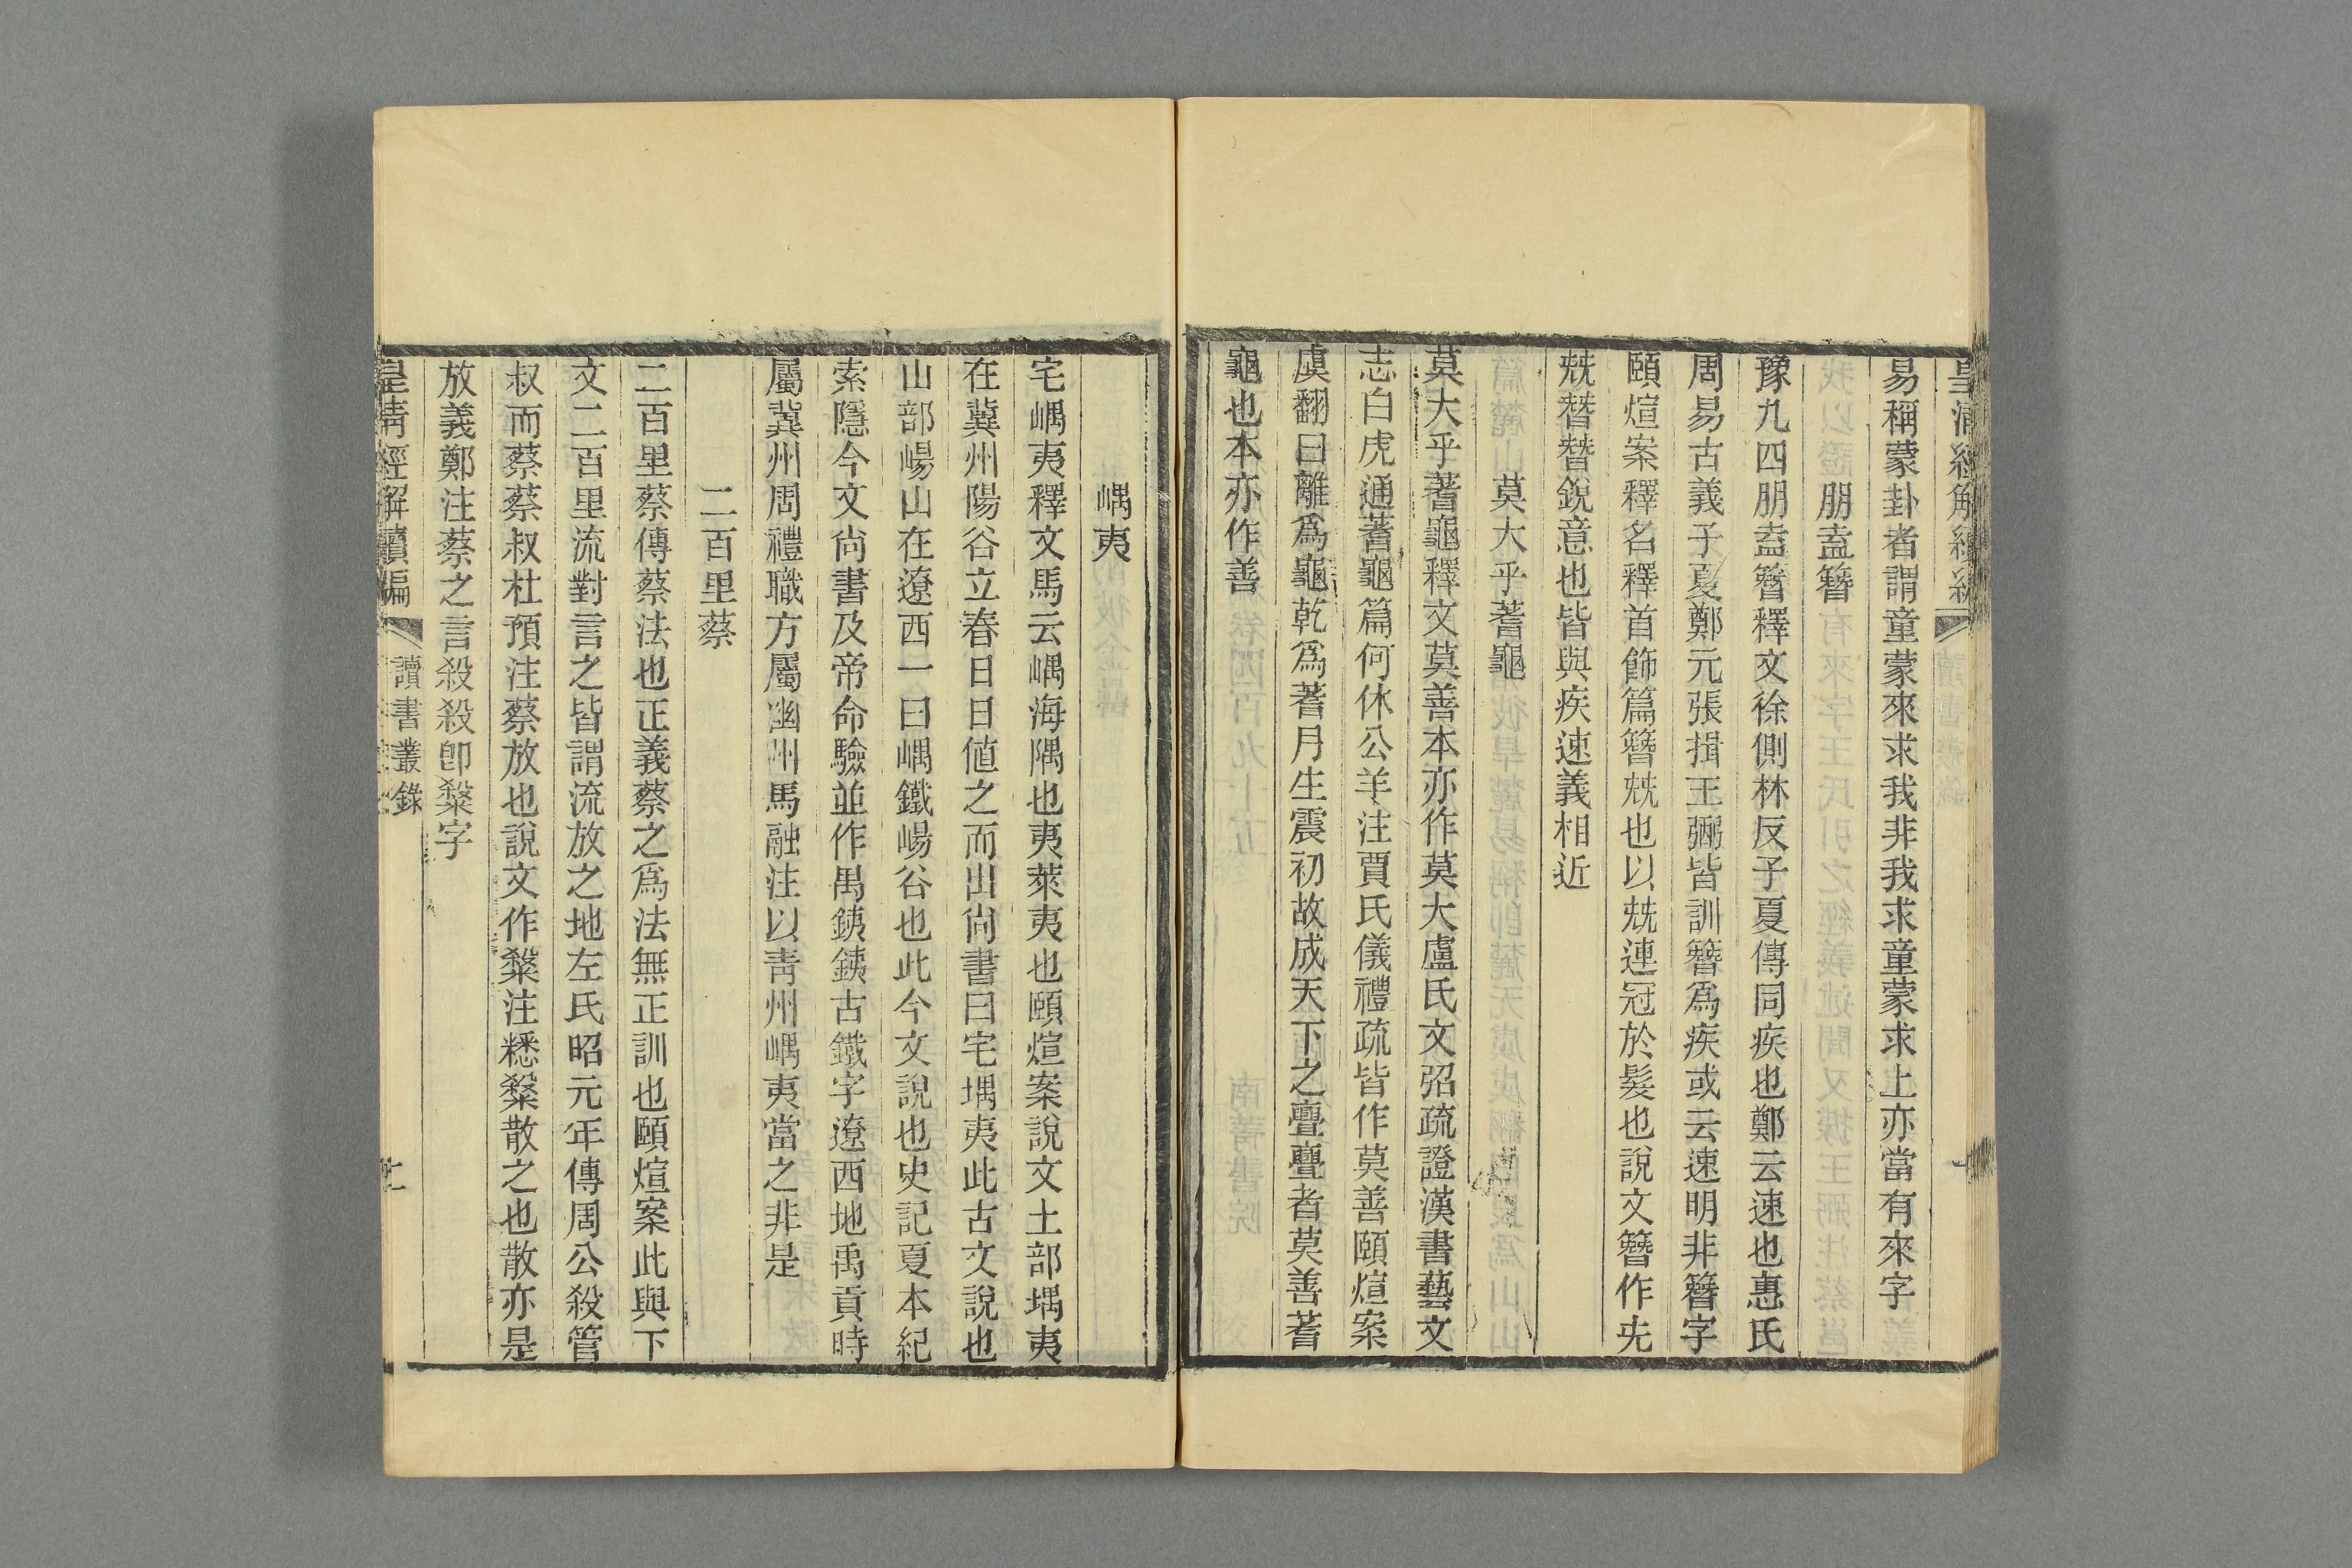 易稱蒙卦者謂童蒙來求我非我求童蒙求上亦當有來字
朋盍簪
豫九四朋盍簪釋文徐側林反子夏傳同疾也鄭云速也惠氏
周易古義子夏鄭元張揖王弼皆訓簪爲疾或云速明非簪字
頤煊案釋名釋首飾篇簪兟也以兟連冠於髮也說文簪作兂
兟朁朁銳意也皆與疾速義相近
莫大乎蓍龜
莫大乎蓍龜釋文莫善本亦作莫大盧氏文弨疏證漢書藝文
志白虎通蓍龜篇何休公羊注賈氏儀禮疏皆作莫善頤煊案
虞翻曰離爲龜乾爲蓍月生震初故成天下之亹亹者莫善蓍
龜也本亦作善
嵎夷
宅嵎夷釋文馬云嵎海隅也夷萊夷也頤煊案說文土部堣夷
在冀州陽谷立春日日値之而出尙書曰宅堣夷此古文說也
山部崵山在遼西一曰嵎鐵崵谷也此今文說也史記夏本紀
索隱今文尙書及帝命驗並作禺銕銕古鐵字遼西地禹貢時
屬冀州周禮職方屬幽州馬融注以青州嵎夷當之非是
二百里蔡
二百里蔡傳蔡法也正義蔡之爲法無正訓也頤煊案此與下
文二百里流對言之皆謂流放之地左氏昭元年傳周公殺管
叔而蔡蔡叔杜預注蔡放也說文作㲈注𥻦㲈散之也散亦是
放義鄭注蔡之言殺殺卽㲈字
皇清經解續編 讀書叢錄